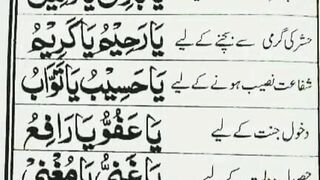 حشر کی گرمی سے بچنے کے لیے یَا رَحِیْمُ یَا کَرِیْمُ
شفاعت نصیب ہونے کے لیے یَا حَسِیْبُ یَا تَوَّابُ
دخول جنت کے لیے یَا عَفُوُّ یَا رَافِعُ
یَا غَنِیُّ یَا مُغْنِیْ